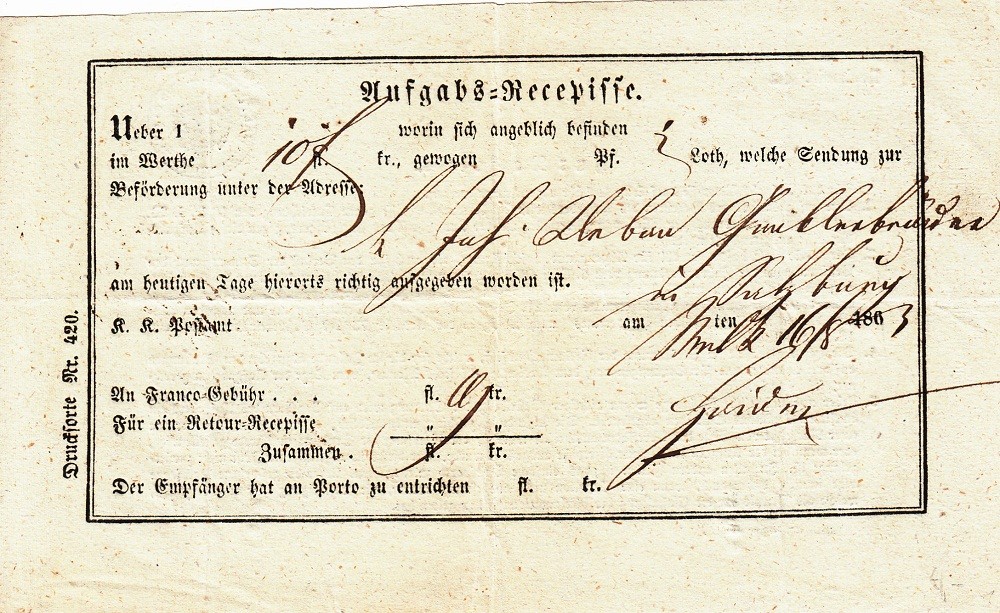 Aufgabs-Recepisse.
Ueber 1 worin sich angeblich befinden
im Werthe 10 fl. kr., gewogen Pf. Loth, welche Sendung zur
Beförderung unter der Adresse:
Joh.
am heutigen Tage hierorts richtig aufgegeben worden ist.
in Salzburg
K. K. Postamt am ten 1863
Melk 16/8
An Franco-Gebühr . . . fl. kr.
Für ein Retour-Recepisse " "
Zusammen . fl. kr.
Der Empfänger hat an Porto zu entrichten fl. kr.
Drucksorte Nr. 420.